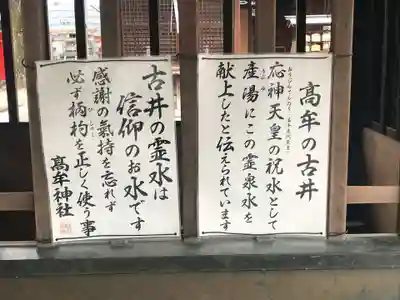 高牟の古井
応神天皇の祝水として
産湯にこの霊泉水を
献上したと伝えられています
古井の霊水は
信仰のお水です
感謝の氣持を忘れず
必ず柄杓を正しく使う事
高牟神社